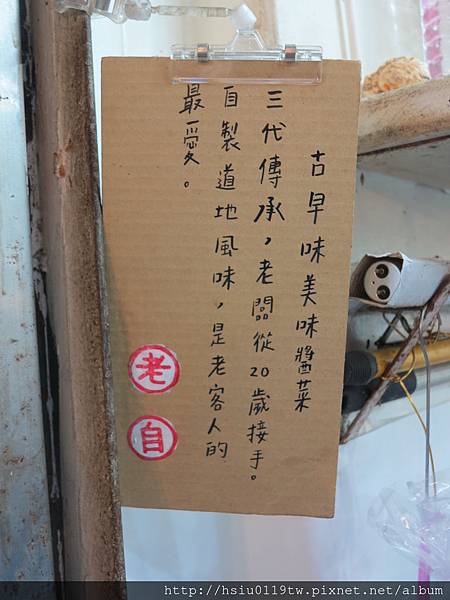 古早味美味醬菜
三代傳承，老闆從20歲接手。
自製道地風味，是老客人的
最愛。
老
自
http://hsiu0119tw.pixnet.net/album